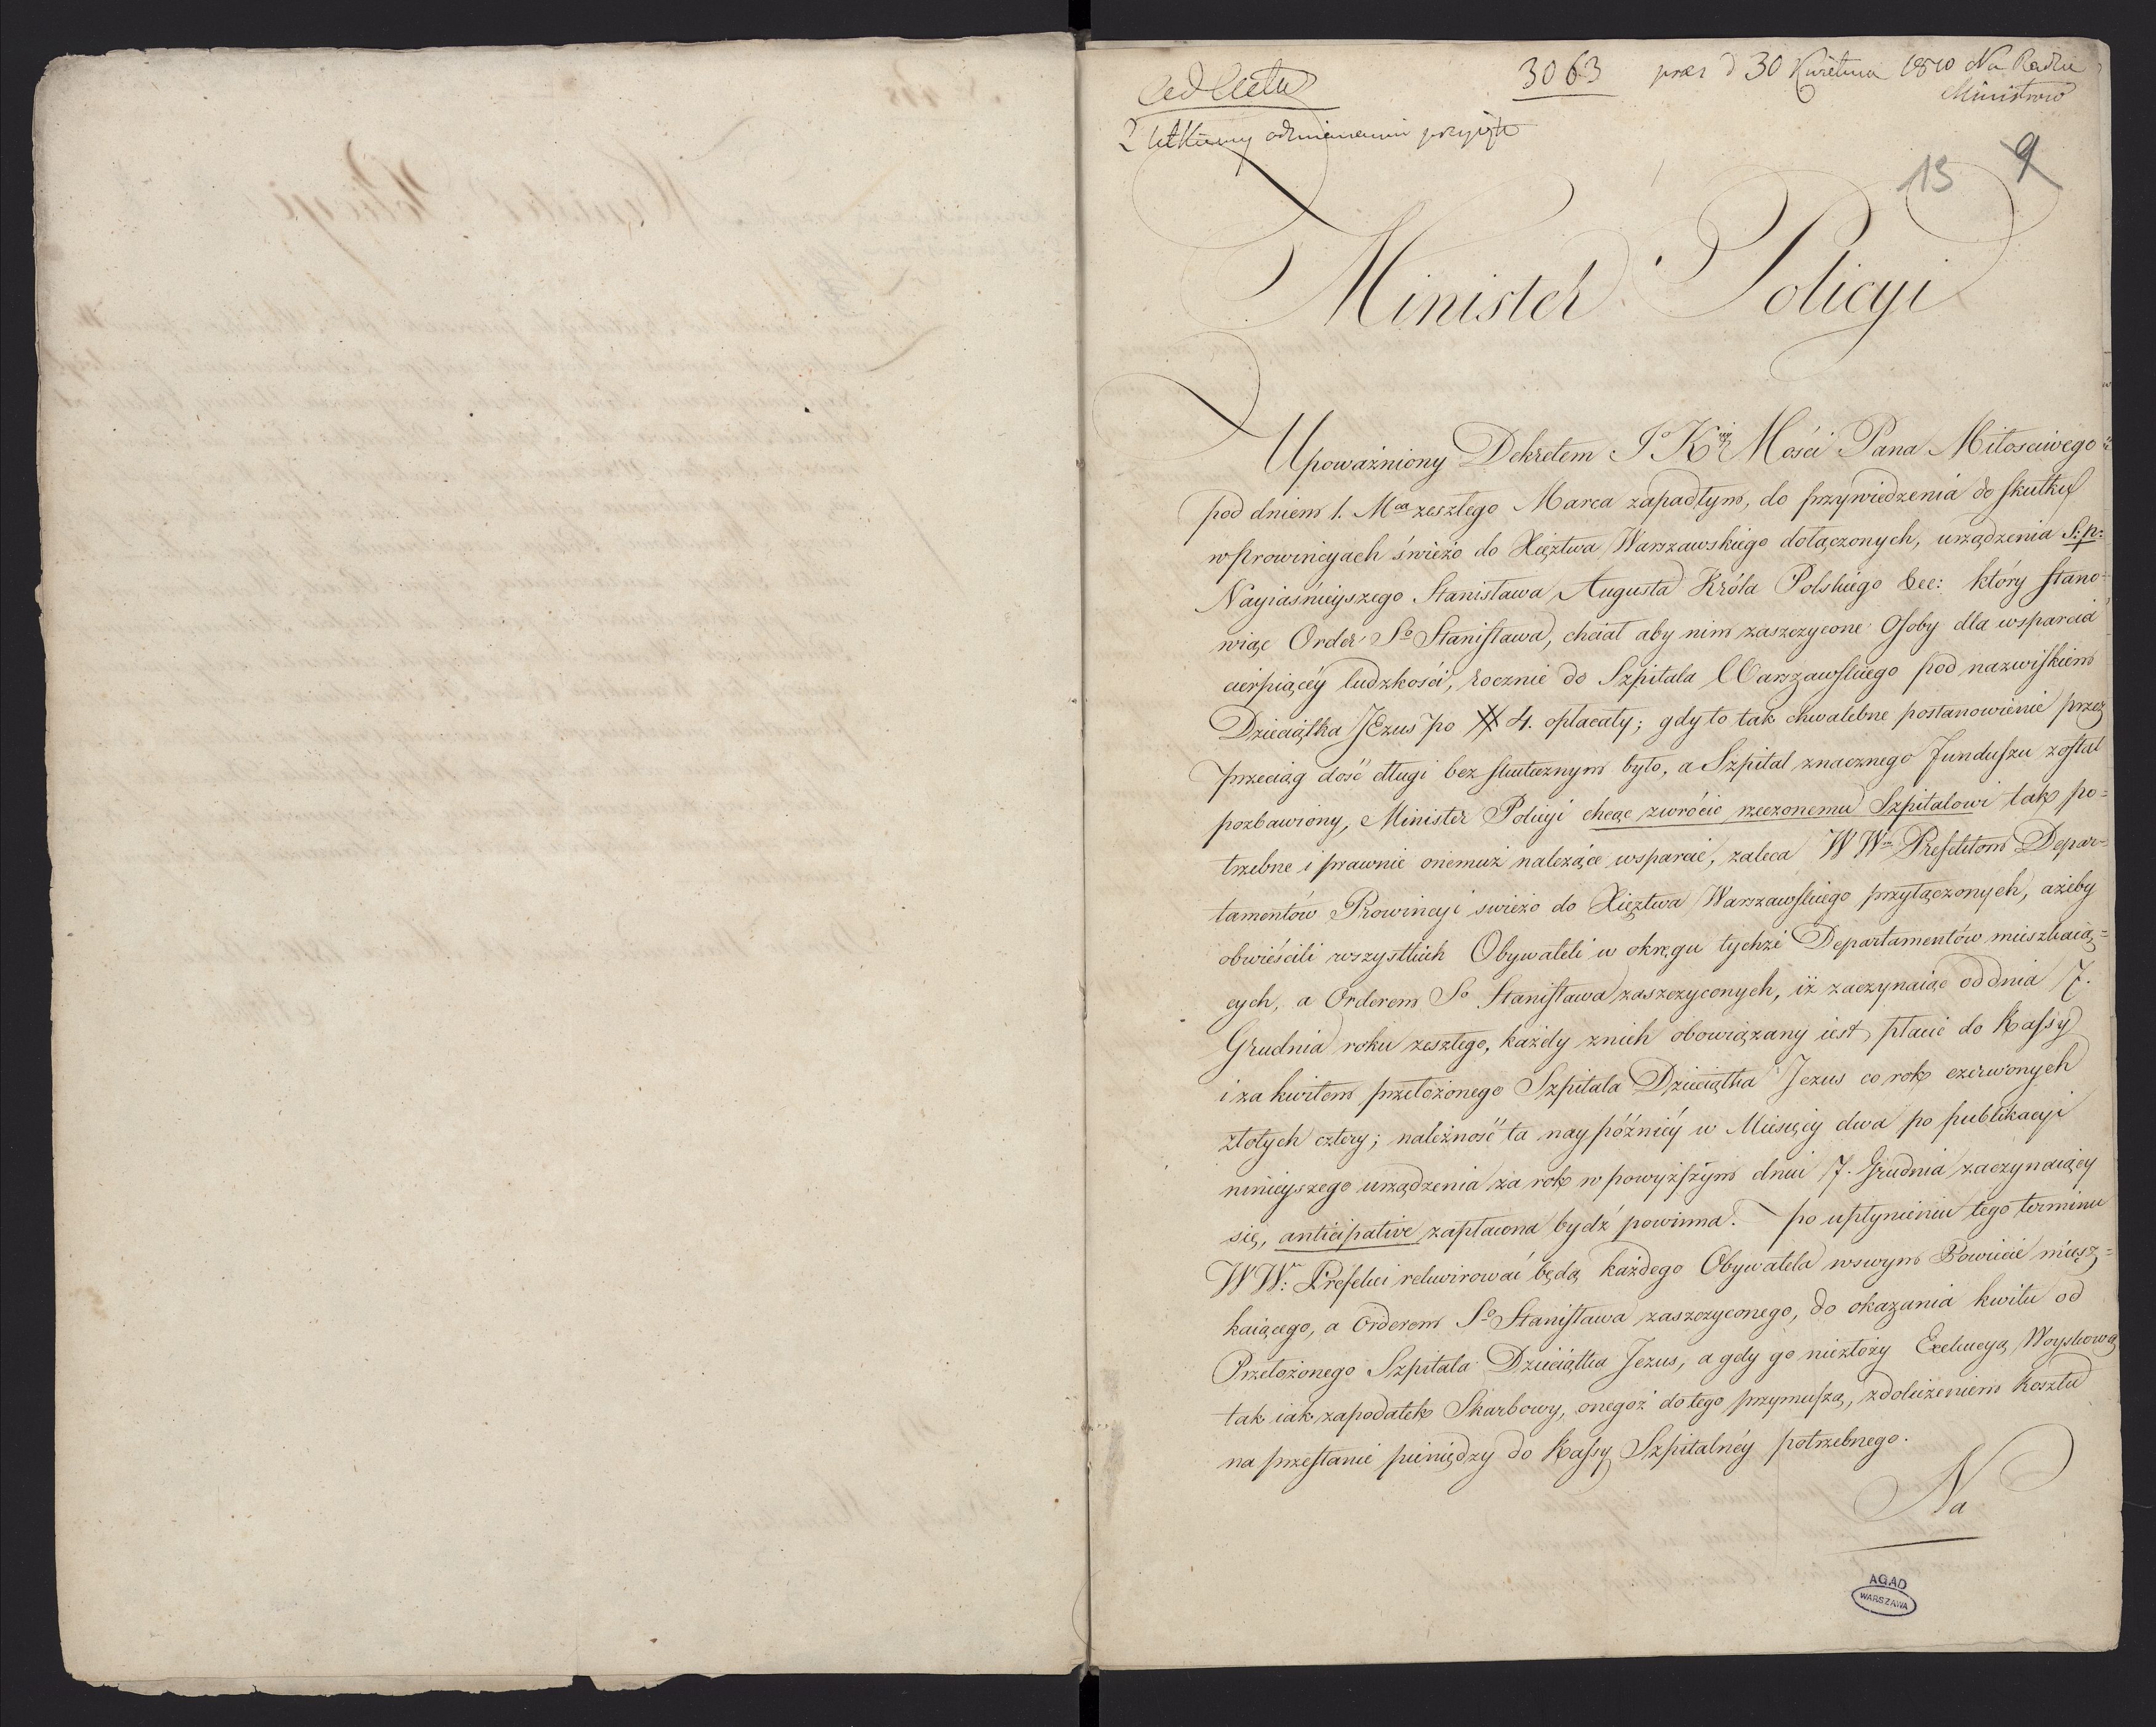 3063 prez d 30 Kwietnia 1810 Na Radzie
Ministrow
przyięte
15 9
Minister Policyi
Upoważniony Dekretem Jo Kr Mości Pana Miłosciwego
pod dniem 1. Mca zeszłego Marca zapadłym, do przywiedzenia do skutku
w Prowincyach świeżo do Xięztwa Warszawskiego dołączonych, urządzenia S: p:
Nayiaśnieyszego Stanisława Augusta Króla Polskiego &cc: który stano=
wiąc Order So Stanisława, chciał aby nim zaszczycone Osoby dla wsparcia
cierpiącéy ludzkości, rocznie do Szpitala Warszawskiego pod nazwiskiem
Dzieciątka JEzus po # 4. opłacały; gdy to tak chwalebne postanowienie przez
przeciąg dość długi bez skutecznym było, a Szpital znacznego Funduszu został
pozbawiony, Minister Policyi chcąc zwrócić rzeczonemu Szpitalowi tak po=
trzebne i prawnie onemuż należące wsparcie, zaleca W Wm Prefektom Depar=
tamentów Prowincyi swieżo do Xięztwa Warszawskiego przyłączonych, ażeby
obwieścili wszystkich Obywateli w okręgu tychże Departamentów mieszkaią=
cych, a Orderem So Stanisława zaszczyconych, iż zaczynaiąc od dnia 7.
Grudnia roku zeszłego, każdy z nich obowiązany iest płacić do Kassy
i za kwitem przełożonego Szpitala Dzieciątka Jezus co rok czerwonych
złotych cztery; należność ta naypóźniéy w Miesięcy dwa po publikacyi
ninieyszego urządzenia za rok w powyższym dniu 7. Grudnia zaczynaiący
się, anticipative zapłacona bydź powinna. po upłynieniu tego terminu
W Wr. Prefekci rekwirować będą każdego Obywatela w swym Powiecie miesz=
kaiącego, a Orderem So Stanisława zaszczyconego, do okazania kwitu od
Przełożonego Szpitala Dzieciątka Jezus, a gdy go niezłoży Exekucyą Woyskową
tak iak za podatek Skarbowy, onegoż do tego przymuszą, z doliczeniem kosztu
na przesłanie pieniędzy do Kassy Szpitalnéy potrzebnego.
Na
AGAD
WARSZAWA